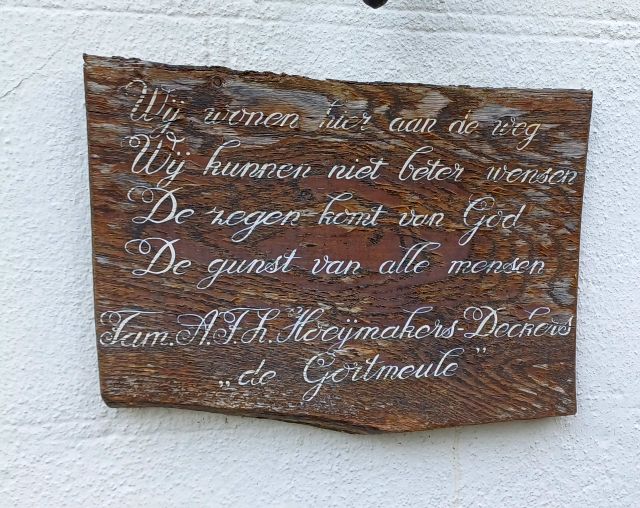 Wij wonen hier aan de weg
Wij kunnen niet beter wensen
De zegen komt van God
De gunst van alle mensen
Fam. A.J.h. Hoeijmakers-Deckers
„de Gortmeule"